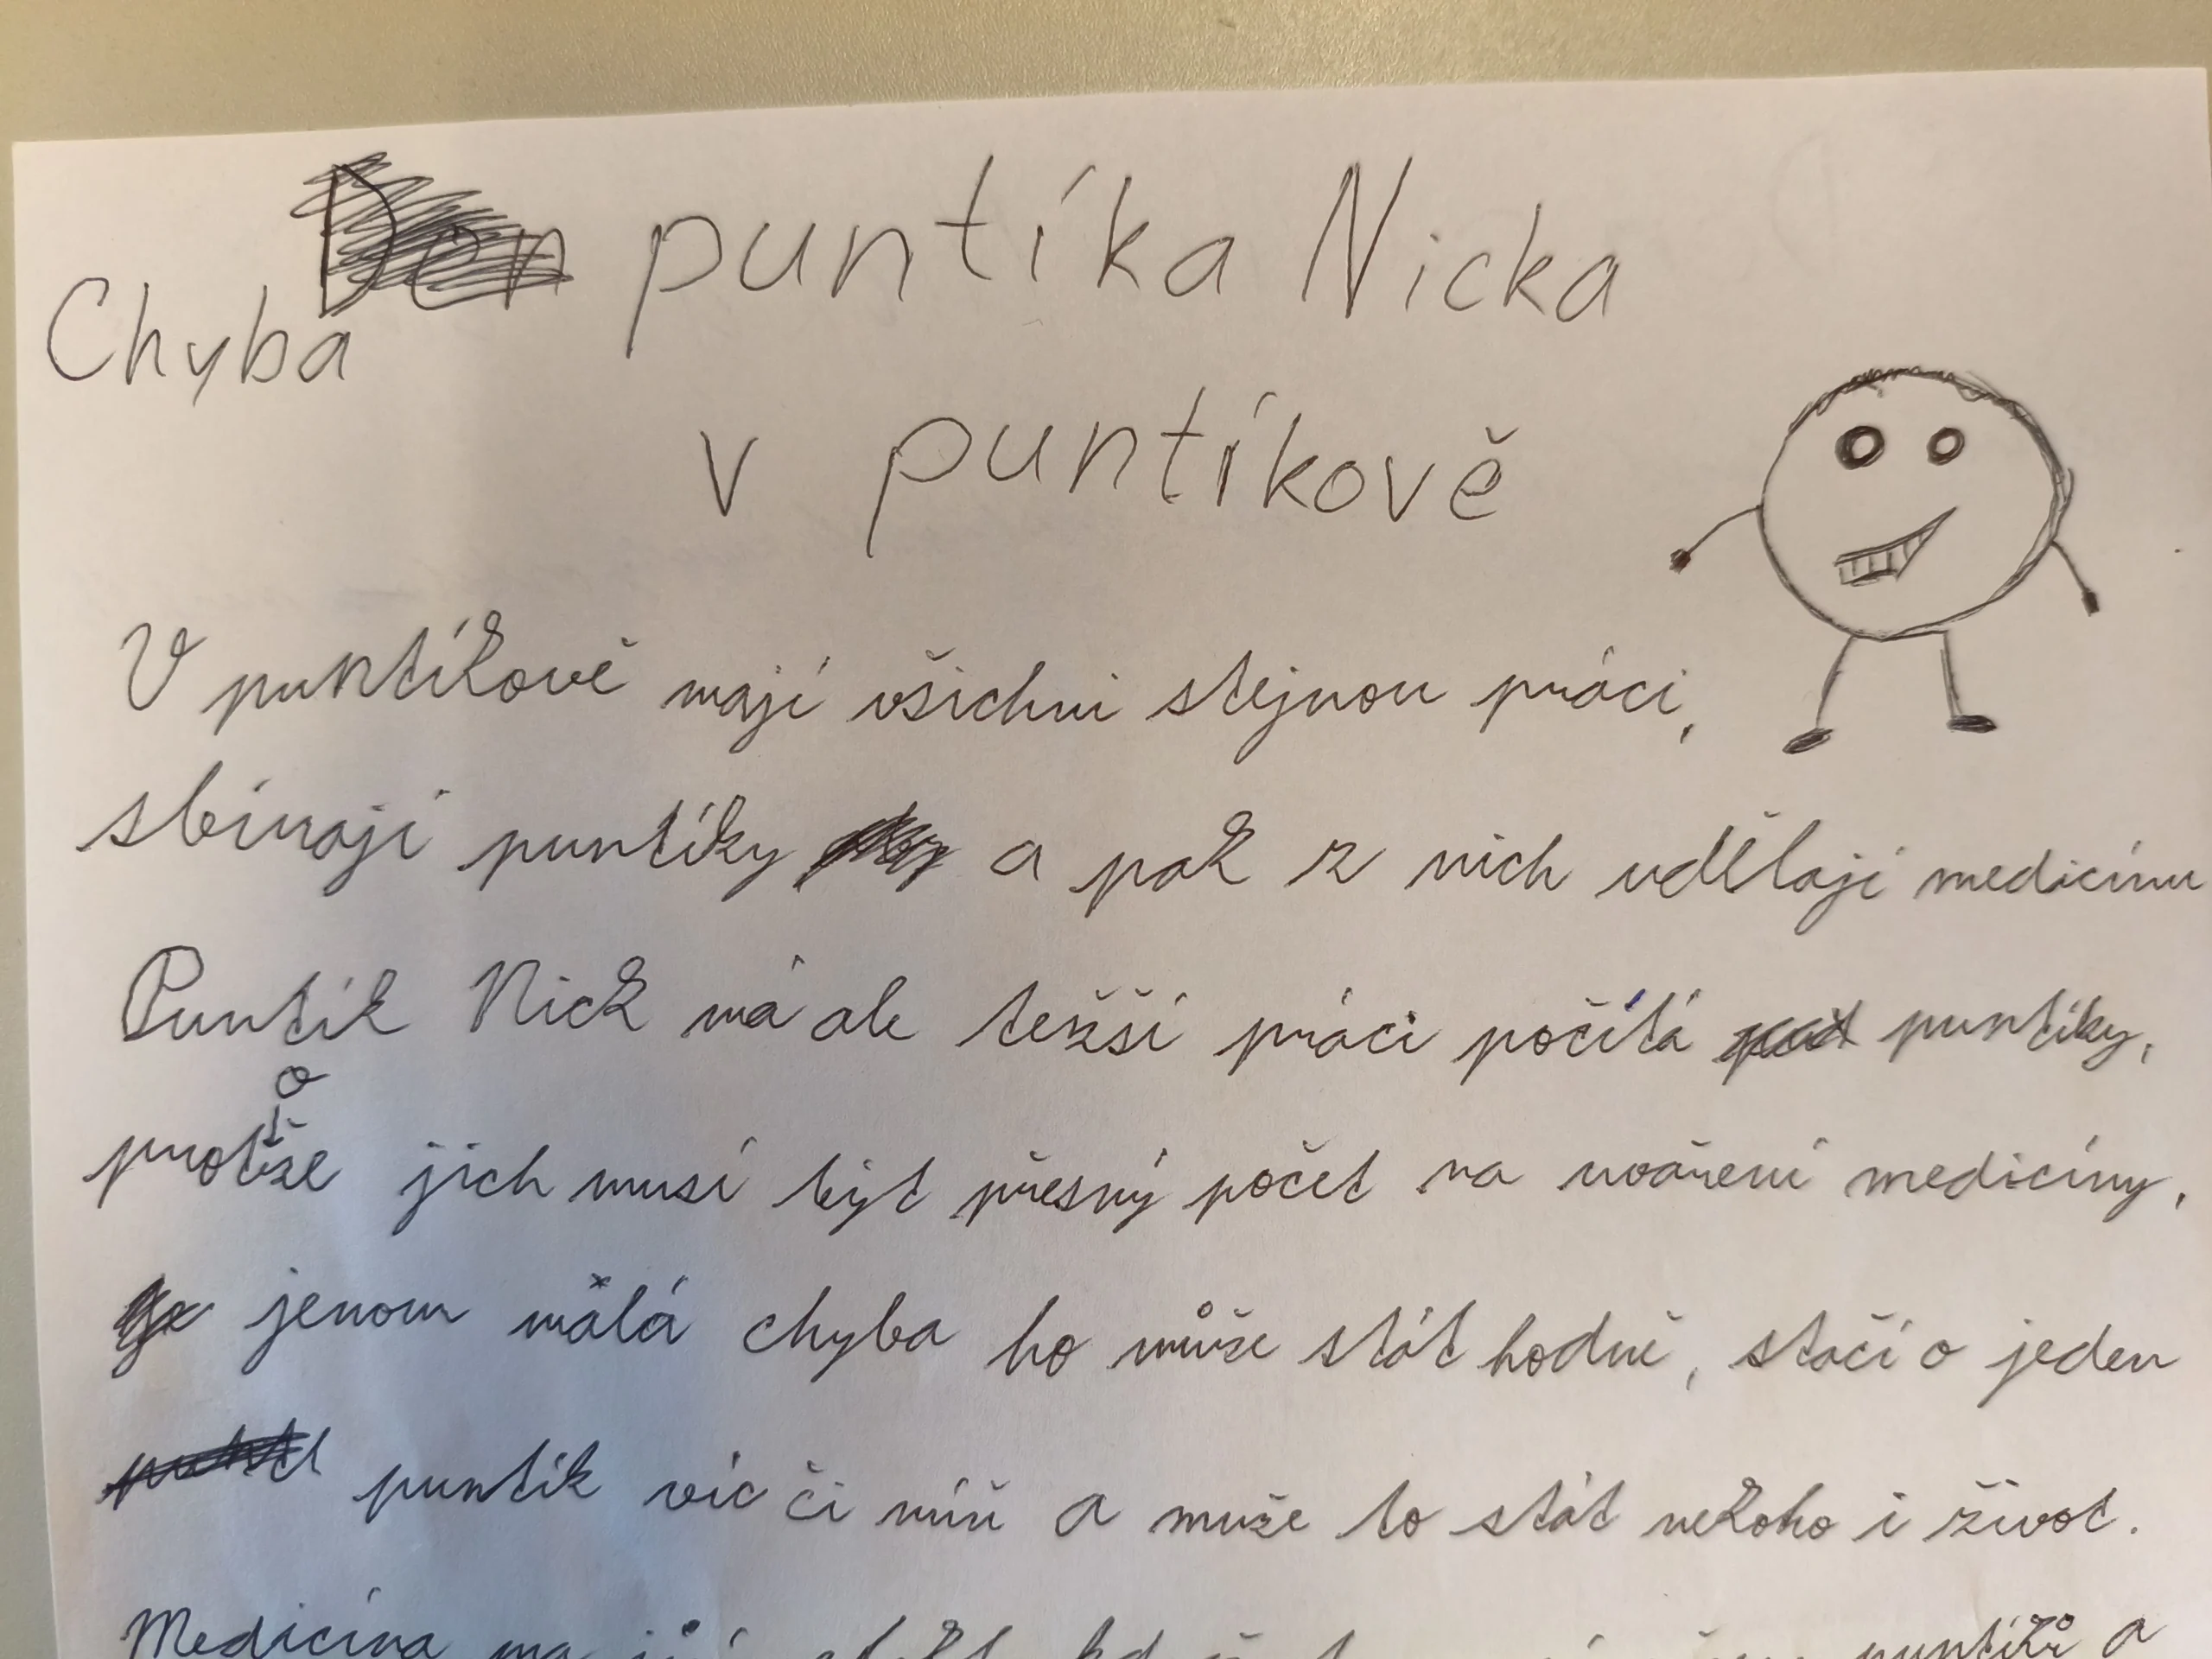 Den puntíka Nicka
Chyba
v puntíkově
V puntíkově mají všichni stejnou práci,
sbírají puntíky a pak z nich udělají medicínu
Puntík Nick má ale težší práci počítá puntíky,
protože jich musí být přesný počet na uvaření medicíny,
jenom malá chyba ho může stát hodně, stačí o jeden
puntík víc či míň a muže to stát nekoho i život.
Medicína puntíků a